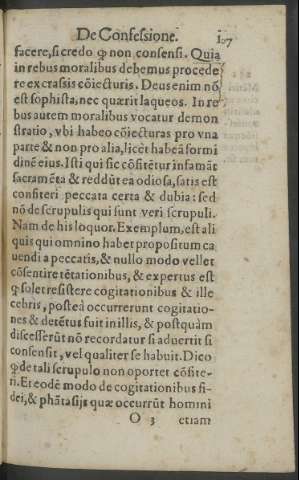 De Confessione. 107
facere, si credo ꝙ non consensi. Quia
in rebus moralibus debemus procede
re ex crassis cõiecturis. Deus enim nõ
est sophista, nec quærit laqueos. In re
bus autem moralibus vocatur demon
stratio, vbi habeo cõiecturas pro vna
parte & non pro alia, licèt habeã formi
dinẽ eius. Isti qui sic cõfitẽtur infamãt
sacramẽta & reddũt ea odiosa, satis est
confiteri peccata certa & dubia: sed
nõ de scrupulis qui sunt veri scrupuli.
Nam de his loquor. Exemplum, est ali
quis qui omnino habet propositum ca
uendi a peccatis, & nullo modo vellet
cõsentire tẽtationibus, & expertus est
ꝙ solet resistere cogitationibus & ille
cebris, posteà occurrerunt cogitatio-
nes & detẽtus fuit in illis, & postquàm
discesserũt nõ recordatur si aduertit si
consensit, vel qualiter se habuit. Dico
ꝙ de tali scrupulo non oportet cõfite-
ri. Et eodẽ modo de cogitationibus fi-
dei, & phãtasijs quæ occurrũt homini
O 3 etiam